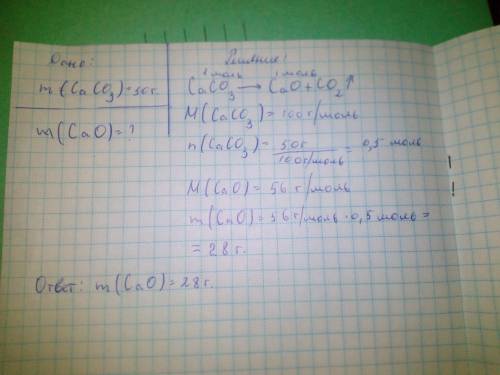 Дано:
m(CaCO₃)=50г.
m(CaO)=?
Решение:
1 моль 1 моль
CaCO₃ → CaO+CO₂↑
M(CaCO₃)=100г/моль
n(CaCO₃)= 50г / 100г/моль = 0,5 моль
M(CaO)=56 г/моль
m(CaO)=56 г/моль·0,5 моль=
=28 г.
Ответ: m(CaO)=28 г.